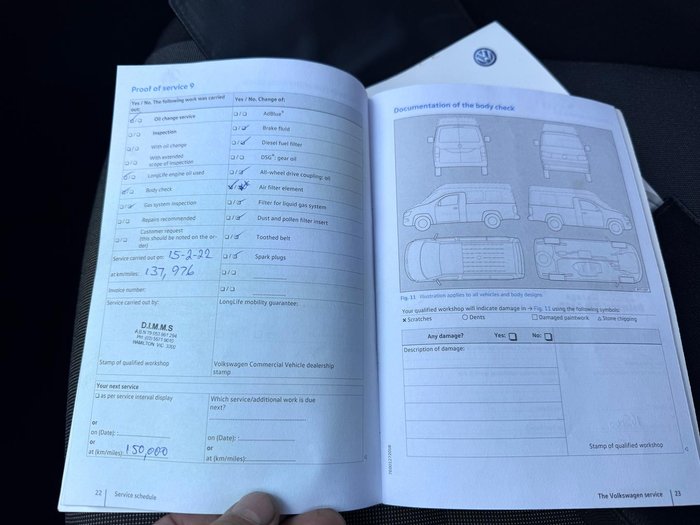 Proof of service 9
Yes / No. The following work was carried out:
Yes / No. Change of:
Oil change service
AdBlue
Inspection
Brake fluid
With oil change
Diesel fuel filter
With extended scope of inspection
DSG®: gear oil
LongLife engine oil used
All-wheel drive coupling: oil
Body check
Air filter element
Gas system inspection
Filter for liquid gas system
Repairs recommended
Dust and pollen filter insert
Customer request
(this should be noted on the order)
Toothed belt
Service carried out on: 15-2-22
Spark plugs
at km/miles: 137,976
Invoice number:
Service carried out by:
LongLife mobility guarantee:
D.I.M.M.S
HAMILTON VIC. 3300
Stamp of qualified workshop
Volkswagen Commercial Vehicle dealership
stamp
Your next service
as per service interval display
Which service/additional work is due
next?
or
on (Date):
on (Date):
or
or
at (km/miles): 150,000
at (km/miles):
22 Service schedule
Documentation of the body check
Fig. 11 Illustration applies to all vehicles and body designs
Your qualified workshop will indicate damage in → Fig. 11 using the following symbols:
x Scratches O Dents □ Damaged paintwork △ Stone chipping
Any damage? Yes: □ No: □
Description of damage:
Stamp of qualified workshop
The Volkswagen service 23